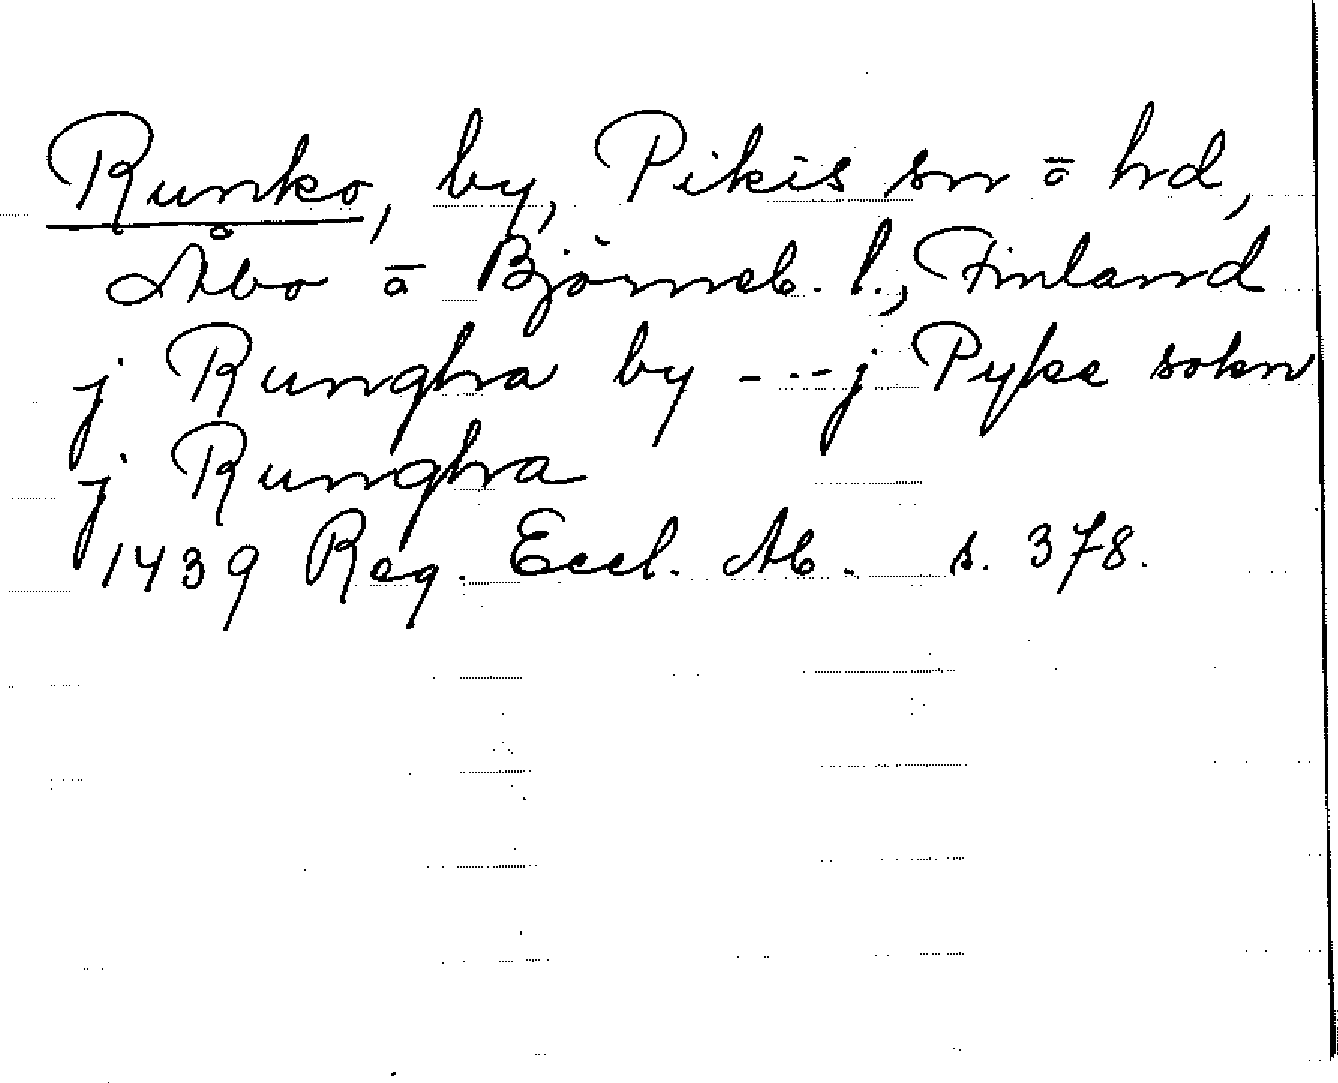 Runko, by, Pikis sn o hd,
Åbo o Björneb. l., Finland
j Rungha by - - - j Pyke sokn
j Rungha
1439 Reg. Eccl. Ab. s. 378.